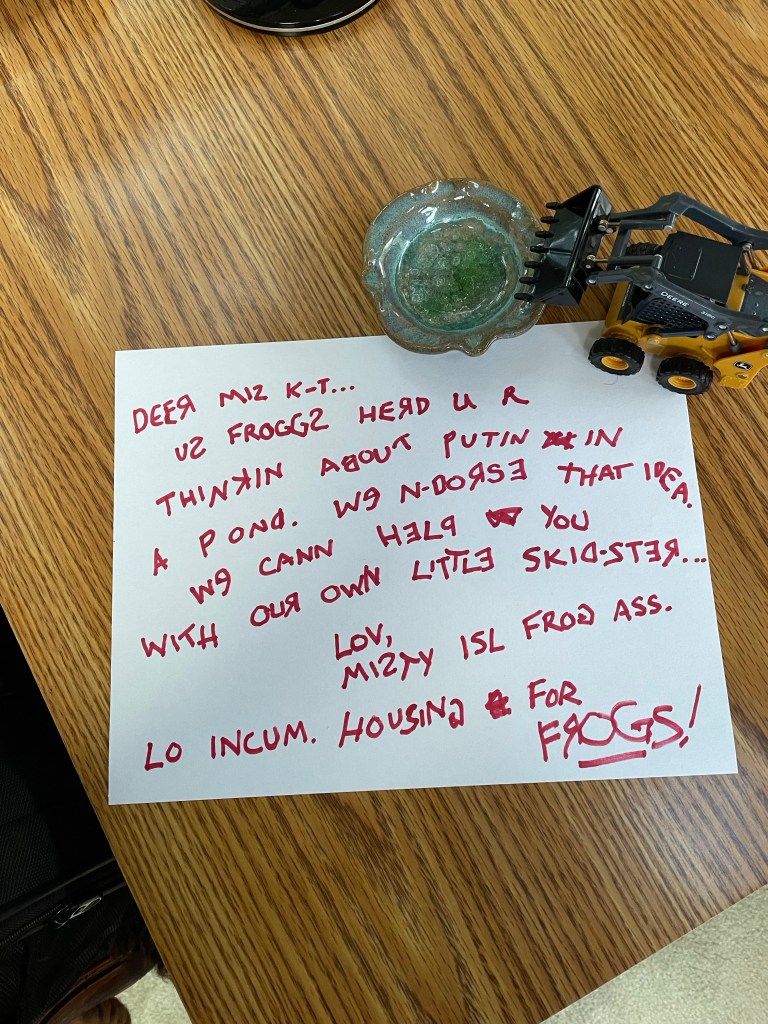 DEER MIZ K-T...
UZ FROGGZ HERD U R
THINKIN ABOUT PUTIN IN
A POND. WE N-DORSE THAT IDEA.
WE CANN HELP YOU
WITH OUR OWN LITTLE SKID-STER...
LOV,
MIZTY ISL FROG ASS.
LO INCUM. HOUSING FOR
FROGS!
DEERE